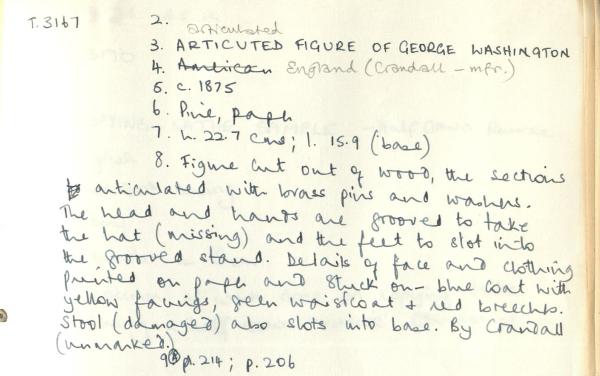 T.3167
2.
articulated
3. ARTICUTED FIGURE OF GEORGE WASHINGTON
4. American England (Crandall - mfr.)
5. c. 1875
6. Pine, paper
7. h. 22.7 cms; l. 15.9 (base)
8. Figure cut out of wood, the sections
articulated with brass pins and washers.
The head and hands are grooved to take
the hat (missing) and the feet to slot into
the grooved stand. Details of face and clothing
printed on paper and stuck on - blue coat with
yellow facings, green waistcoat + red breeches.
Stool (damaged) also slots into base. By Crandall
(unmarked.)
p. 214; p. 206